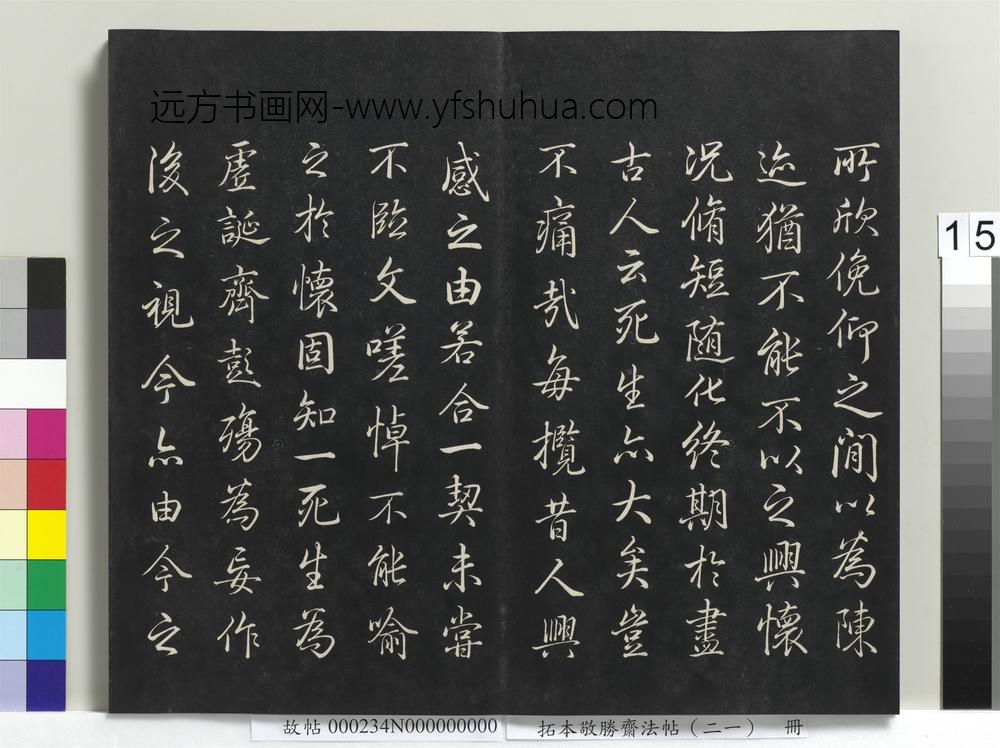 远方书画网-www.yfshuhua.com
所欣俛仰之閒以為陳
迹猶不能不以之興懷
況脩短随化終期於盡
古人云死生亦大矣豈
不痛哉每攬昔人興
感之由若合一契未嘗
不臨文嗟悼不能喻
之於懷固知一死生為
虛誕齊彭殤為妄作
後之視今亦由今之
15
故帖 000234N000000000 拓本敬勝齋法帖（二一） 冊